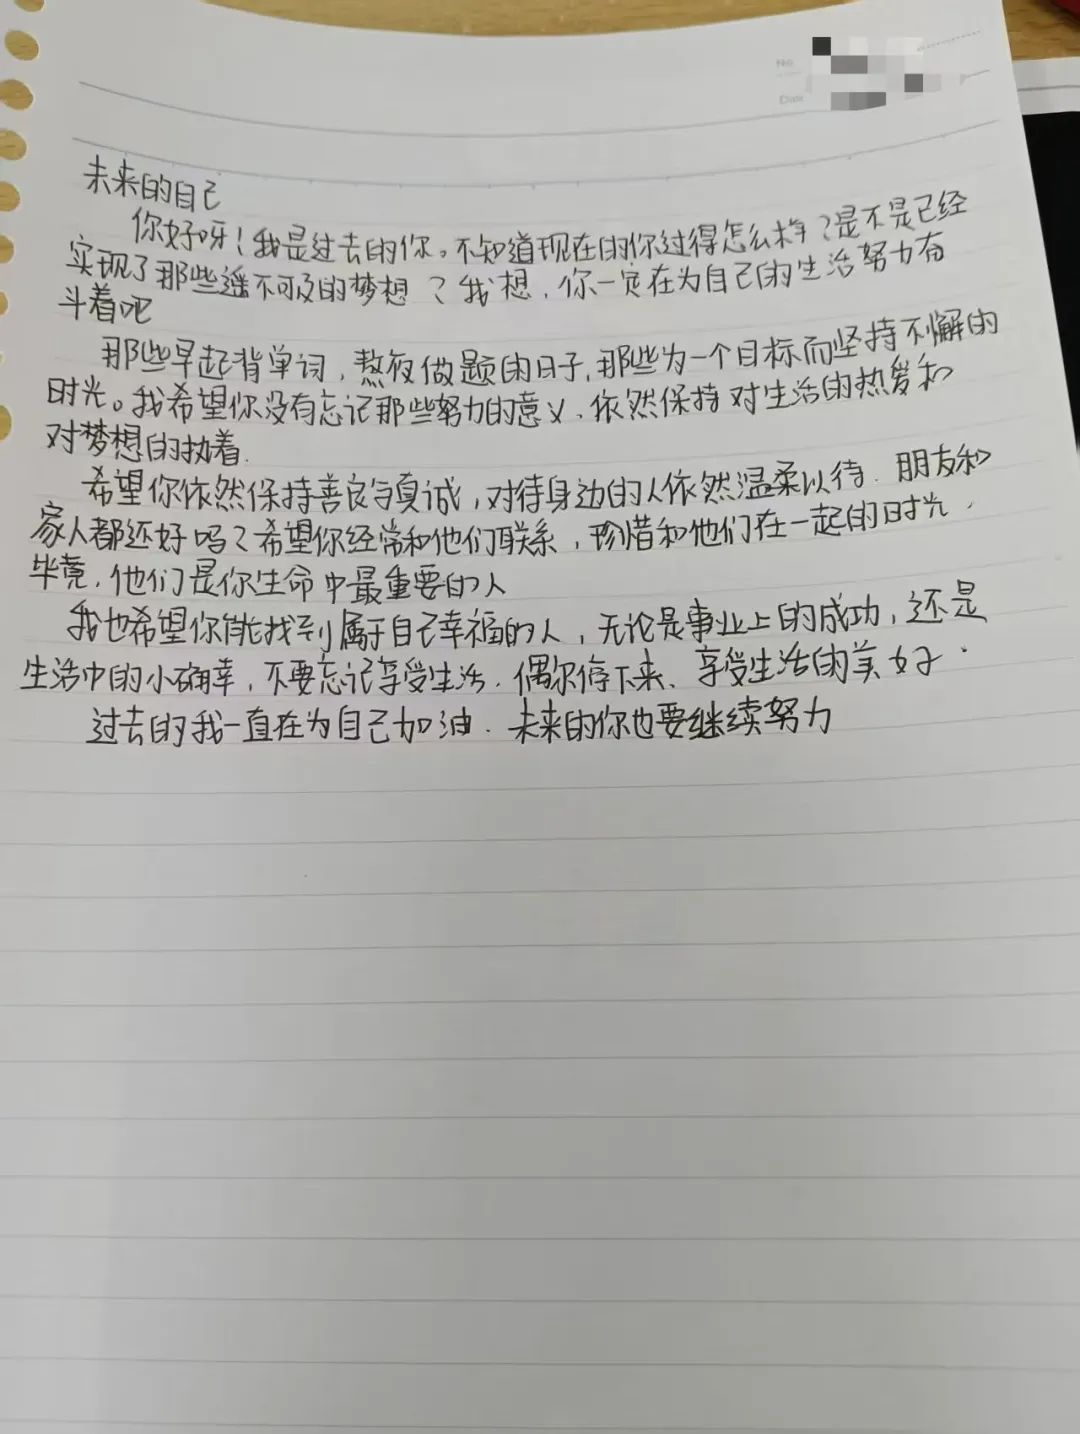 No
Date
未来的自己
你好呀！我是过去的你。不知道现在的你过得怎么样？是不是已经
实现了那些遥不可及的梦想？我想，你一定在为自己的生活努力奋
斗着吧
那些早起背单词，熬夜做题的日子，那些为一个目标而坚持不懈的
时光。我希望你没有忘记那些努力的意义、依然保持对生活的热爱和
对梦想的执着.
希望你依然保持善良与真诚，对待身边的人依然温柔以待.朋友和
家人都还好吗？希望你经常和他们联系，珍惜和他们在一起的时光.
毕竟，他们是你生命中最重要的人
我也希望你能找到属于自己幸福的人，无论是事业上的成功，还是
生活中的小确幸，不要忘记享受生活.偶尔停下来、享受生活的美好.
过去的我一直在为自己加油.未来的你也要继续努力